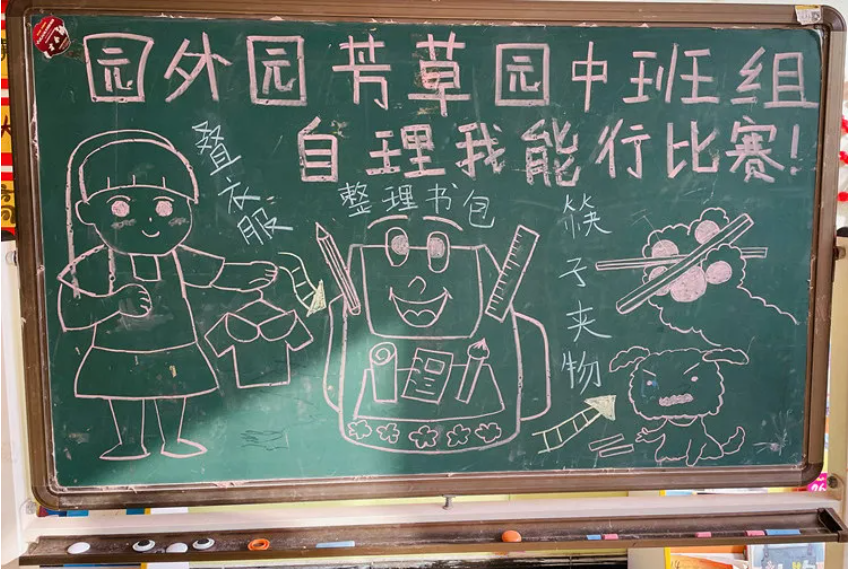 园外园芳草园中班组
自理我能行比赛!
叠衣服
整理书包
筷子夹物